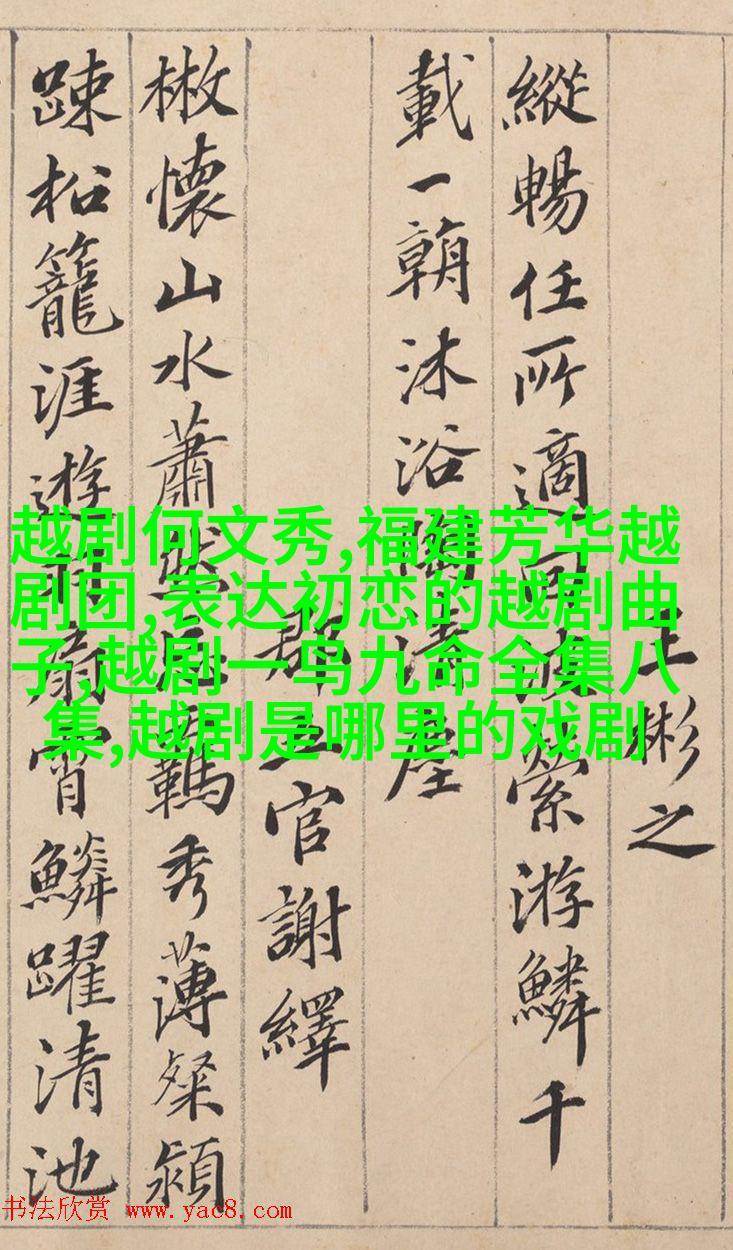 王彬之
縱暢任所適回波縈游鱗千
載一朝沐浴陶清塵
郡五官謝繹
散懷山水蕭然忘羈秀薄粲穎
踈松籠涯遊羽扇霄鱗躍清池
越剧何文秀,福建芳华越
剧团,表达初恋的越剧曲
子,越剧一鸟九命全集八
集,越剧是哪里的戏剧
书法欣赏 www.yac8.com